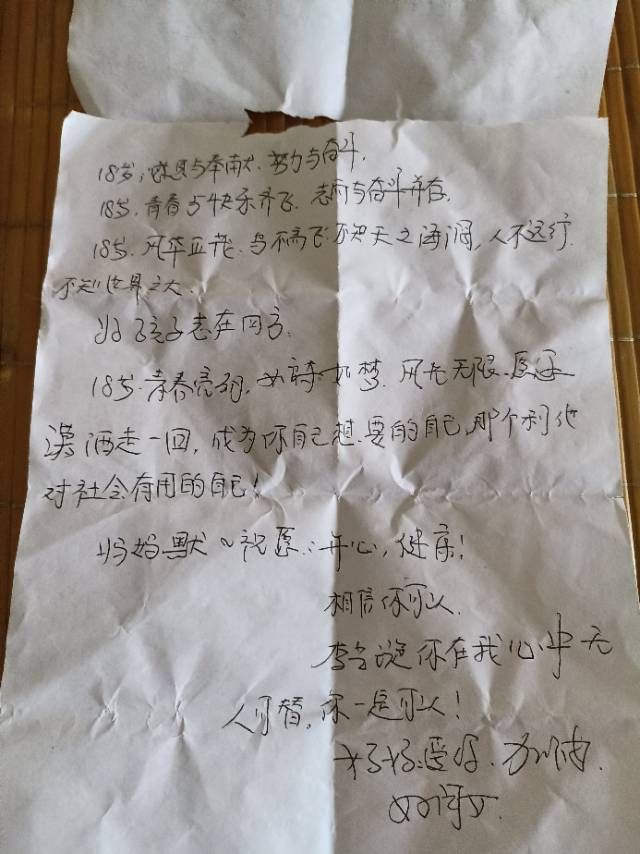 18岁,意味与奉献、努力与奋斗,
18岁,青春与快乐齐飞,志向与奋斗并存,
18岁,风华正茂、鸟不高飞不知天之海阔,人不远行
不知世界之大。
好孩子志在四方,
18岁,青春亮丽,如诗如梦,风光无限,愿还
潇洒走一回,成为你自己想要的自己,那个利他
对社会有用的自己!
妈妈默~祝愿:开心,健康!
相信你可以,
你在我心中无
人可替,你一定可以!
好好爱好,加油,